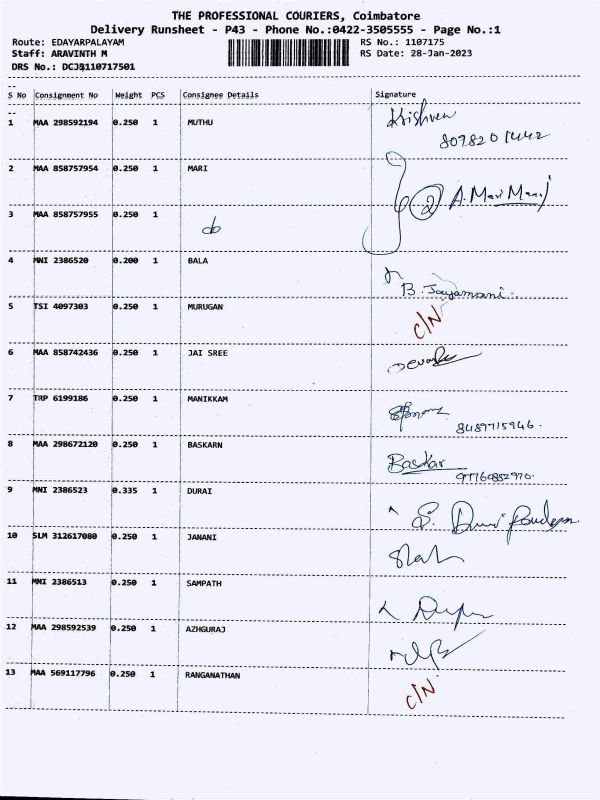 THE PROFESSIONAL COURIERS, Coimbatore
Delivery Runsheet - P43 - Phone No.:0422-3505555 - Page No.:1
Route: EDAYARPALAYAM RS No.: 1107175
Staff: ARAVINTH M RS Date: 28-Jan-2023
DRS No.:
S No Consignment No Weight PCS Consignee Details Signature
1 MAA 298592194 0.250 1 MUTHU Krishven
8098201442
2 MAA 858757954 0.250 1 MARI 2 A. Mari
3 MAA 858757955 0.250 1 do
4 MNI 2386520 0.200 1 BALA
B. Jayamani.
5 TSI 4097303 0.250 1 MURUGAN C/N
6 MAA 858742436 0.250 1 JAI SREE
7 TRP 6199186 0.250 1 MANIKKAM
8489715946.
8 MAA 298672120 0.250 1 BASKARN Baskar
9 MNI 2386523 0.335 1 DURAI S.
10 SLM 312617080 0.250 1 JANANI
11 MNI 2386513 0.250 1 SAMPATH
12 MAA 298592539 0.250 1 AZHGURAJ
13 MAA 569117796 0.250 1 RANGANATHAN C/N